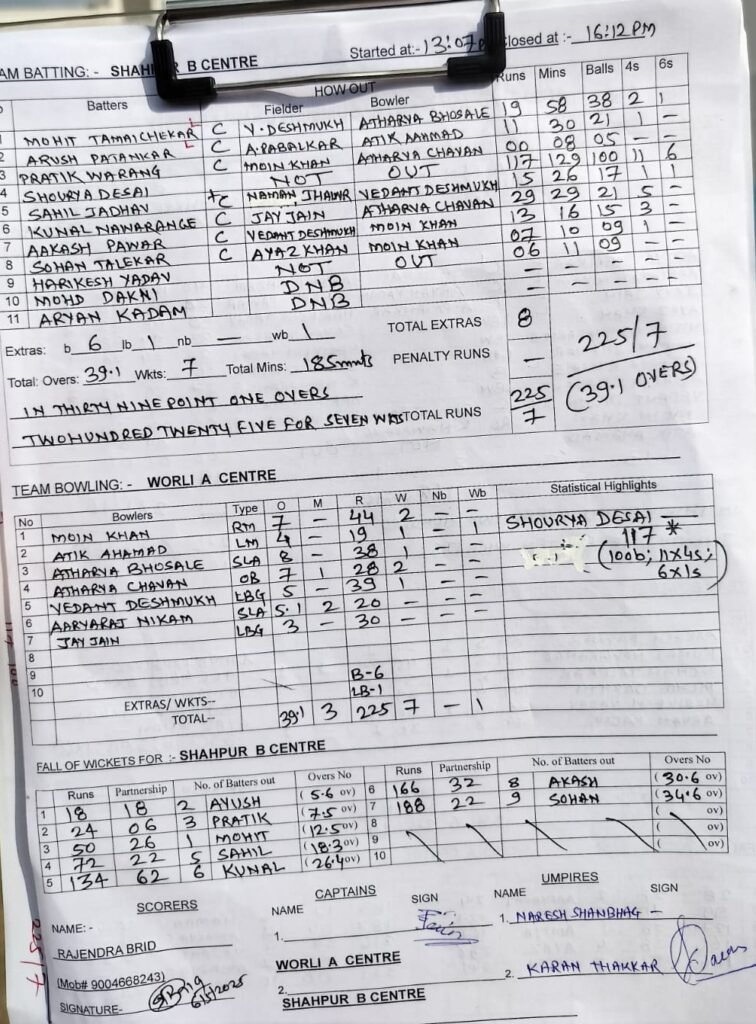 TEAM BATTING: - SHAHPUR B CENTRE Started at:- 13:07 PM Closed at :- 16:12 PM
HOW OUT
Batters Fielder Bowler Runs Mins Balls 4s 6s
1 MOHIT TAMAICHEKAR C V. DESHMUKH ATHARVA BHOSALE 19 58 38 2 1
2 ARUSH PATANKAR C A. PABALKAR ATIK AAHMAD 11 30 21 1 —
3 PRATIK WARANG C MOIN KHAN ATHARVA CHAVAN 00 08 05 — —
4 SHOURYA DESAI NOT OUT 117 129 100 11 6
5 SAHIL JADHAV +C NAMAN JHAWR VEDANT DESHMUKH 15 26 17 1 1
6 KUNAL NAWARANGE C JAY JAIN ATHARVA CHAVAN 29 29 21 5 —
7 AAKASH PAWAR C VEDANT DESHMUKH MOIN KHAN 13 16 15 3 —
8 SOHAN TALEKAR C AYAZ KHAN MOIN KHAN 07 10 09 1 —
9 HARIKESH YADAV NOT OUT 06 11 09 — —
10 MOHD DAKNI DNB — — — — —
11 ARYAN KADAM DNB — — — — —
Extras: b 6 lb 1 nb — wb 1 TOTAL EXTRAS 8
Total: Overs: 39.1 Wkts: 7 Total Mins: 185mnts PENALTY RUNS —
225/7
(39.1 OVERS)
IN THIRTY NINE POINT ONE OVERS
TWO HUNDRED TWENTY FIVE FOR SEVEN WKTS TOTAL RUNS 225
7
TEAM BOWLING: - WORLI A CENTRE
No Bowlers Type O M R W Nb Wb Statistical Highlights
1 MOIN KHAN RM 7 — 44 2 — —
2 ATIK AHAMAD LM 4 — 19 1 — 1
3 ATHARVA BHOSALE SLA 8 — 38 1 — —
4 ATHARVA CHAVAN OB 7 1 28 2 — —
5 VEDANT DESHMUKH LBG 5 — 39 1 — —
6 AARYARAJ NIKAM SLA 5.1 2 20 — — —
7 JAY JAIN LBG 3 — 30 — — —
8
9
10
SHOURYA DESAI —
117 *
(100b; 11x4s;
6x1s)
B-6
LB-1
EXTRAS/ WKTS--
TOTAL-- 39.1 3 225 7 — 1
FALL OF WICKETS FOR :- SHAHPUR B CENTRE
Runs Partnership No. of Batters out Overs No Runs Partnership No. of Batters out Overs No
1 18 18 2 AYUSH (5.6 ov) 6 166 32 8 AKASH (30.6 ov)
2 24 06 3 PRATIK (7.5 ov) 7 188 22 9 SOHAN (34.6 ov)
3 50 26 1 MOHIT (12.5 ov) 8 ( ov)
4 72 22 5 SAHIL (18.3 ov) 9 ( ov)
5 134 62 6 KUNAL (26.4 ov) 10 ( ov)
SCORERS
NAME: -
RAJENDRA BRID
(Mob# 9004668243)
SIGNATURE- 6/5/2025
CAPTAINS
NAME SIGN
1.
WORLI A CENTRE
2.
SHAHPUR B CENTRE
UMPIRES
NAME SIGN
1. NARESH SHANBHAG —
2. KARAN THAKKAR
225/7